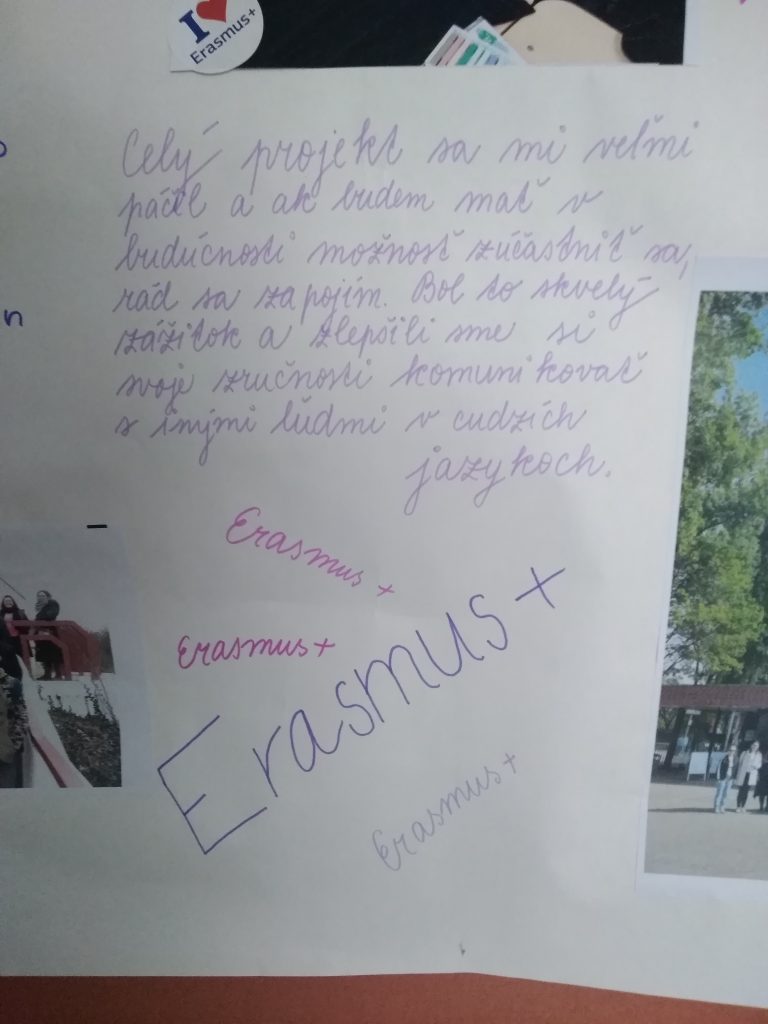 I ❤
Erasmus+
Celý projekt sa mi veľmi
páčil a ak budem mať v
budúcnosti možnosť zúčastniť sa,
rád sa zapojím. Bol to skvelý
zážitok a zlepšili sme si
svoje zručnosti komunikovať
s inými ľuďmi v cudzích
jazykoch.
Erasmus +
Erasmus+
Erasmus+
Erasmus+
n